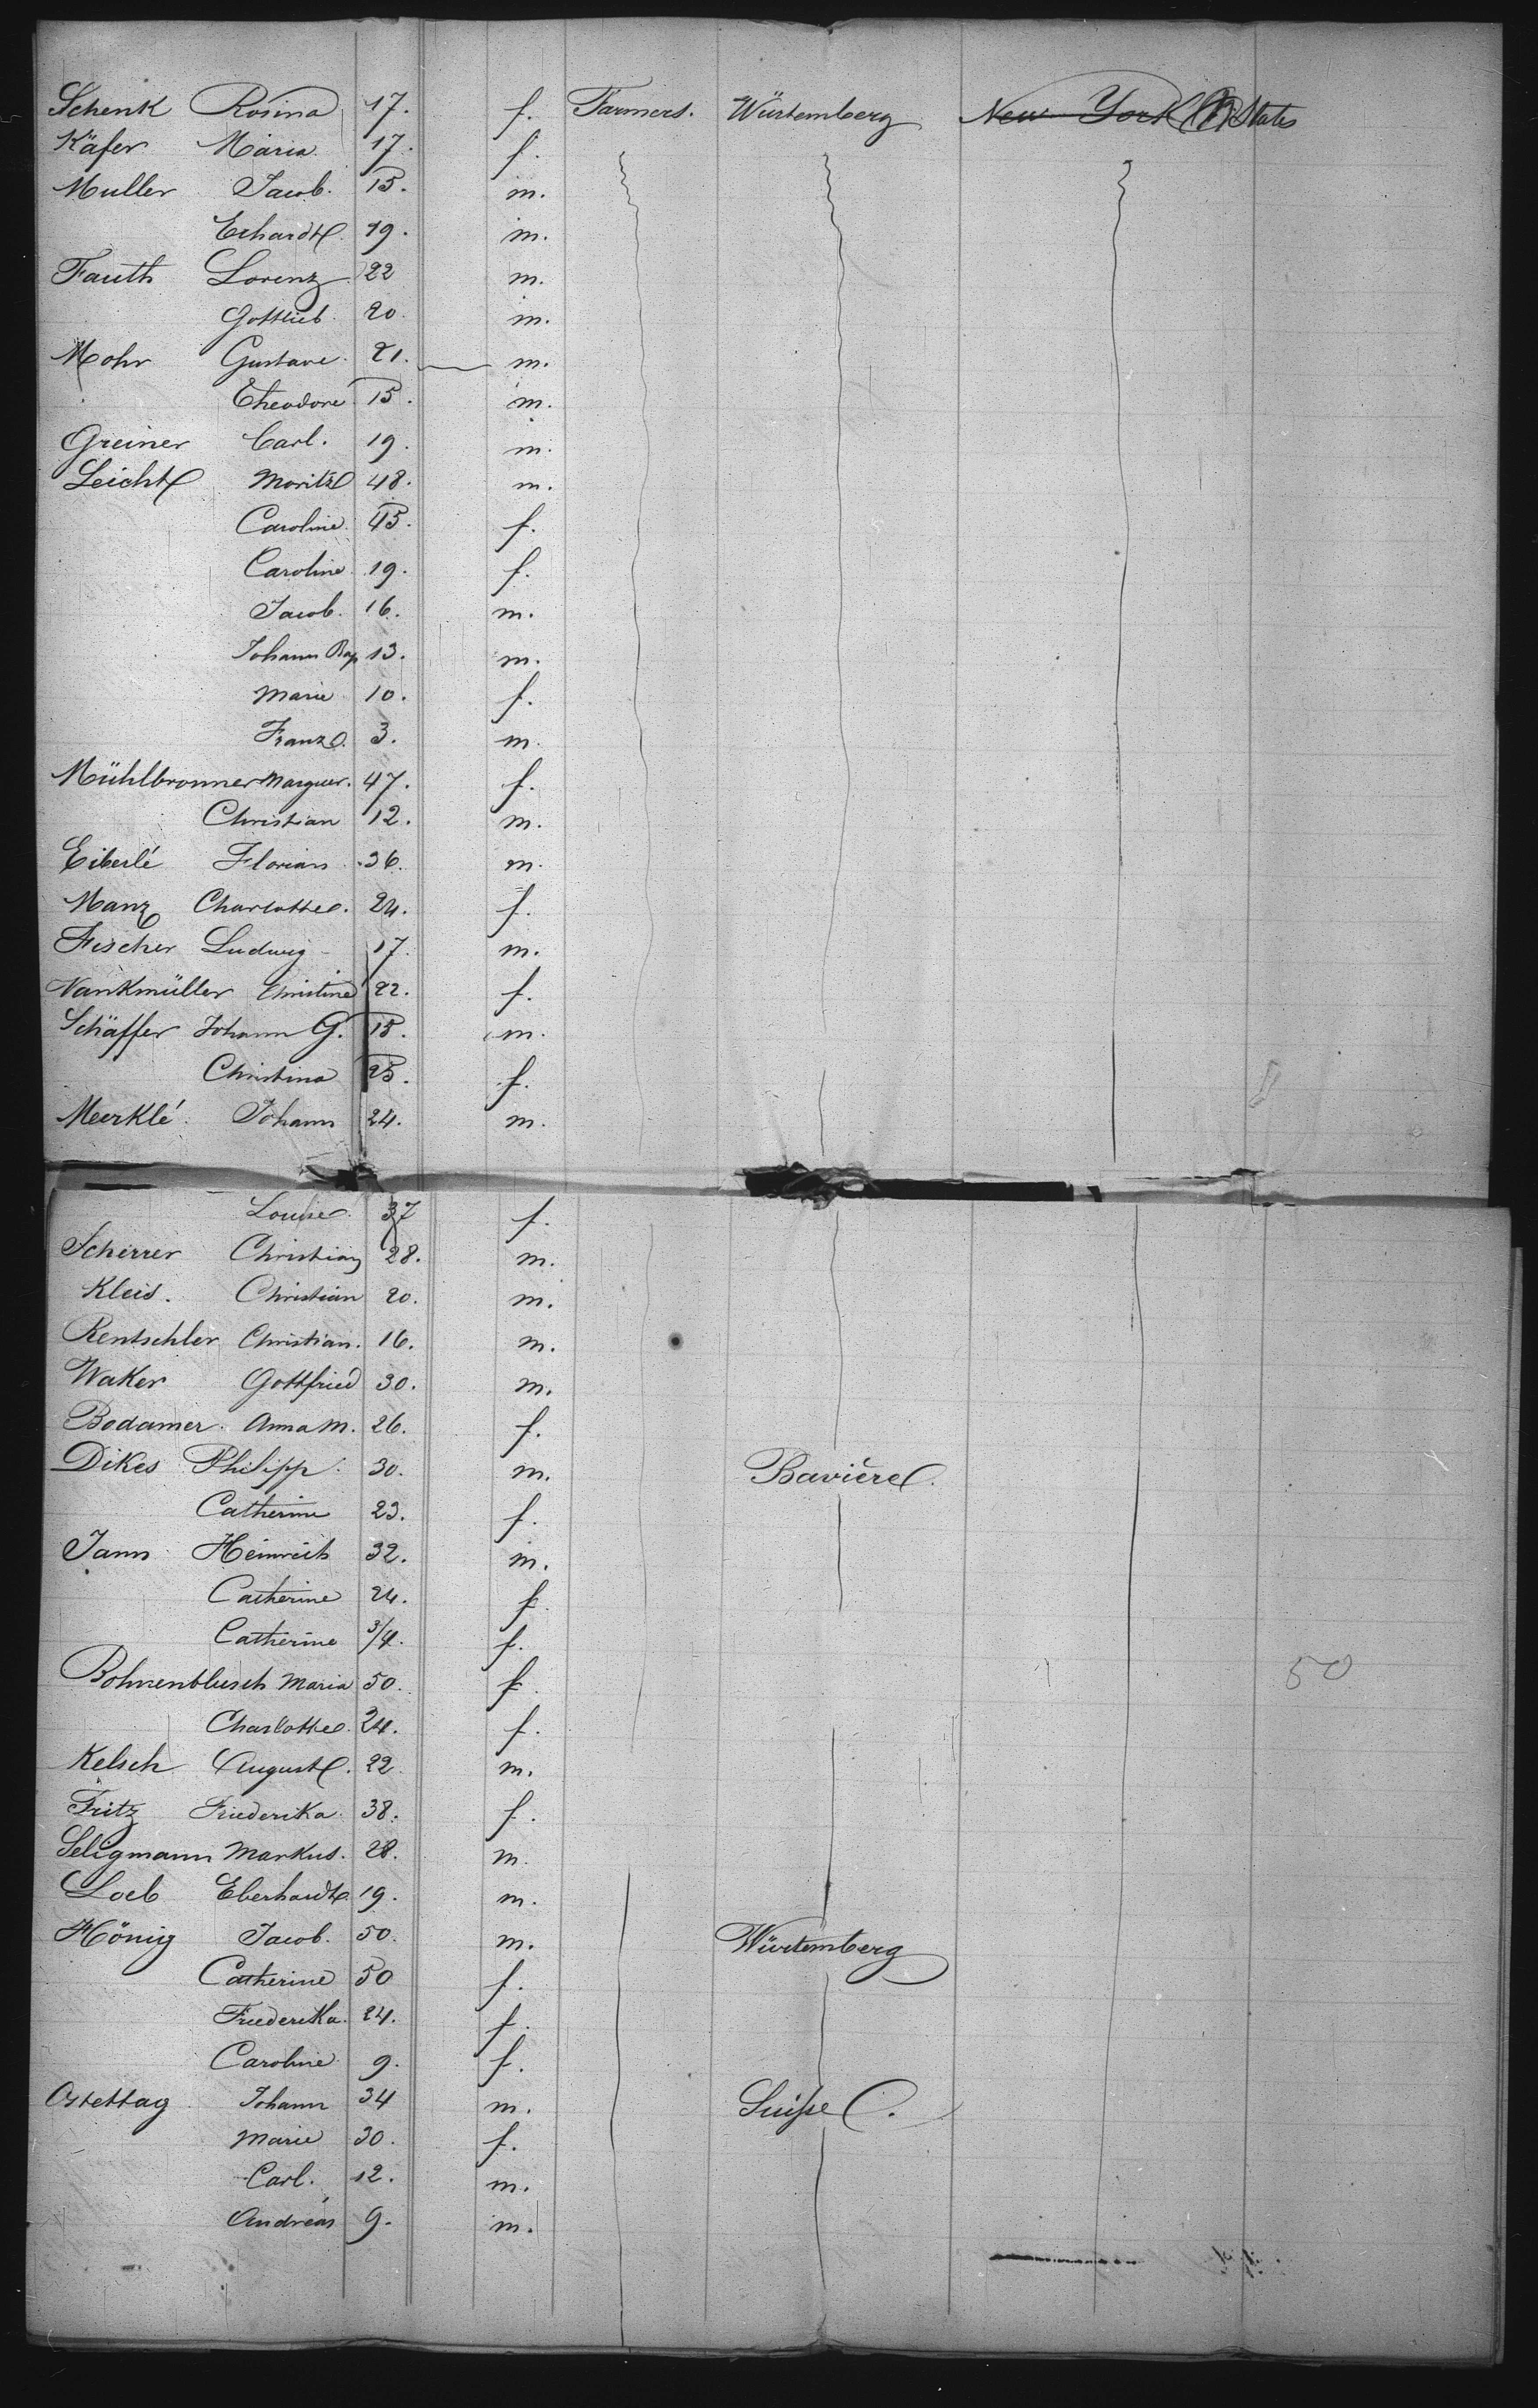 Schenk Rosina 17. f. Farmers. Würtemberg New York U States
Käfer Maria 17. f.
Muller Jacob. 15. m.
Erhardt 19. m.
Fauth Lorenz 22 m.
Gottlieb 20. m.
Mohr Gustave 21. m.
Theodore 15. m.
Greiner Carl. 19. m.
Leicht Moritz 48. m.
Caroline 45. f.
Caroline 19. f.
Jacob. 16. m.
Johann Bap 13. m.
Marie 10. f.
Franz. 3. m.
Mühlbronner Marguer. 47. f.
Christian 12. m.
Eiberlé Florian 36. m.
Manz Charlotte. 24. f.
Fischer Ludwig 17. m.
Nankmüller Christine 22. f.
Schäffer Johann G. 15. m.
Christina 25. f.
Meerklé. Johann 24. m.
Louise. 37 f.
Scherrer Christian 28. m.
Kleis. Christian 20. m.
Rentschler Christian. 16. m.
Waker Gottfried 30. m.
Bodamer. Anna M. 26. f.
Dikes Philipp. 30. m. Bavière.
Catherine 23. f.
Jann Heinrich 32. m.
Catherine 24. f.
Catherine 3/4. f.
Bohnenblusch Maria 50. f. 50
Charlotte. 24. f.
Kelsch August. 22 m.
Fritz Friederika. 38. f.
Seligmann Markus. 28. m.
Loeb Eberhardt 19. m.
König Jacob. 50. m. Würtemberg
Catherine 50 f.
Friederika. 24. f.
Caroline 9. f.
Ostettag Johann 34 m. Suisse.
Marie 30. f.
Carl. 12. m.
Andréas 9. m.